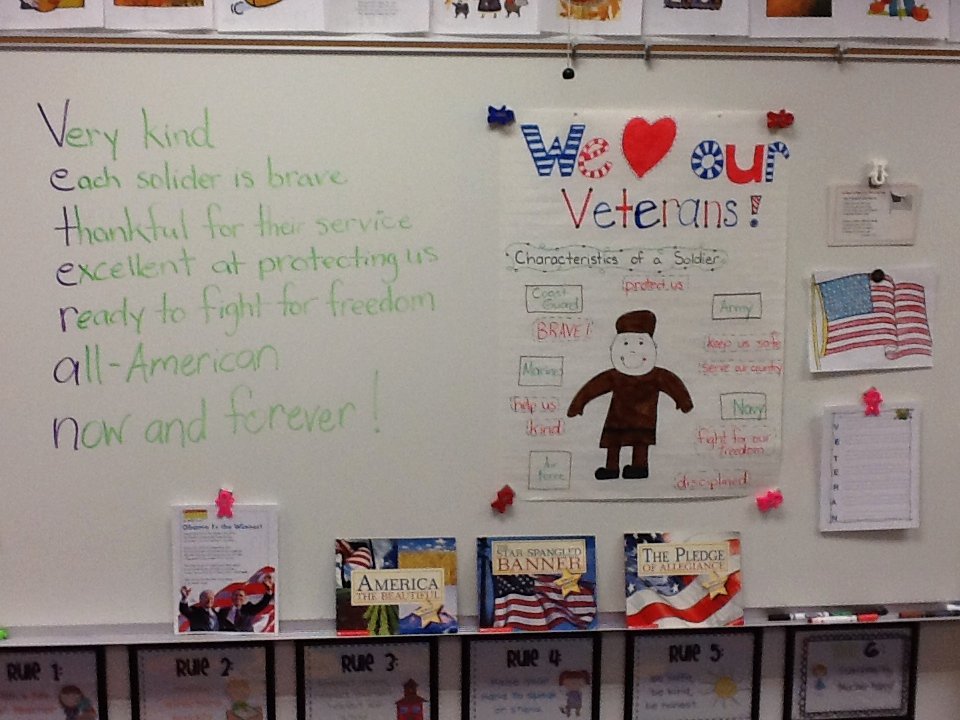 Very kind
each solider is brave
thankful for their service
excellent at protecting us
ready to fight for freedom
all-American
now and forever!
We our
Veterans!
Characteristics of a Soldier
protect us
Coast
Guard
Army
BRAVE!
keep us safe
serve our country
Marine
help us
Navy
kind
fight for our
freedom
Air
Force
disciplined
V
E
T
E
R
A
N
Obama Is the Winner!
AMERICA
THE BEAUTIFUL
STAR-SPANGLED
BANNER
THE PLEDGE
OF ALLEGIANCE
Rule 1:
Rule 2:
Rule 3:
Rule 4:
Rule 5:
6